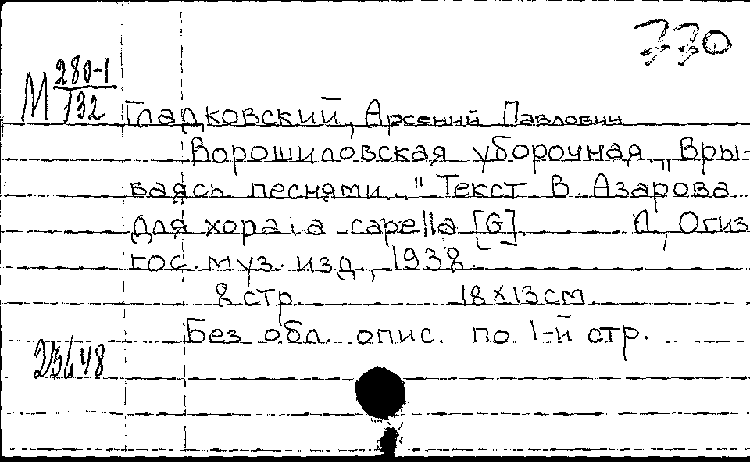 330
М 280-1/132
Гладковский, Арсений Павлович
Ворошиловская уборочная „Вры-
ваясь песнями..." Текст В. Азарова
для хора a capella [G]. Л., Огиз
гос. муз. изд., 1938.
8 стр. 18x13 см.
Без обл. опис. по 1-й стр.